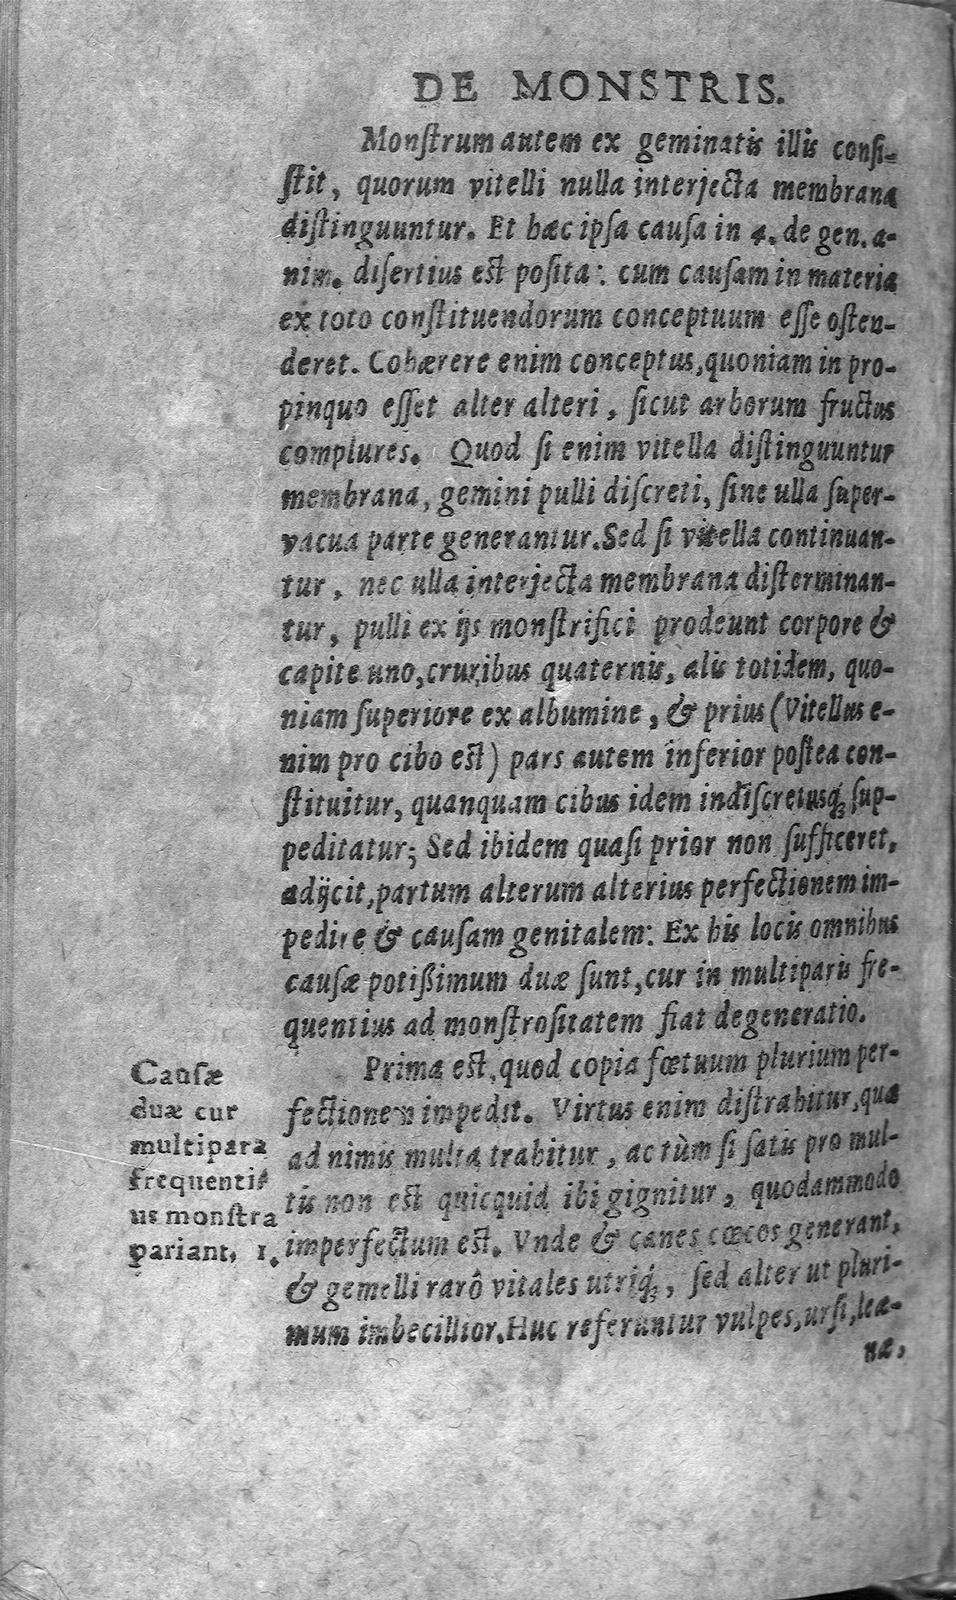 DE MONSTRIS.
Monſtrum autem ex geminatis illis conſi-
ſtit, quorum vitelli nulla interjecta membrana
diſtinguuntur. Et hæc ipſa cauſa in 4. de gen. a-
nim. diſertius eſt poſita: cum cauſam in materia
ex toto conſtituendorum conceptuum eſſe oſten-
deret. Cohærere enim conceptus, quoniam in pro-
pinquo eſſet alter alteri, ſicut arborum fructus
complures. Quod ſi enim vitella diſtinguuntur
membrana, gemini pulli diſcreti, ſine ulla ſuper-
vacua parte generantur. Sed ſi vitella continuan-
tur, nec ulla interjecta membrana diſterminan-
tur, pulli ex ijs monſtrifici prodeunt corpore &
capite uno, cruribus quaternis, alis totidem, quo-
niam ſuperiore ex albumine, & prius (Vitellus e-
nim pro cibo eſt) pars autem inferior poſtea con-
ſtituitur, quanquam cibus idem indiſcretusq́; ſup-
peditatur; Sed ibidem quaſi prior non ſufficeret,
adijcit, partum alterum alterius perfectionem im-
pedire & cauſam genitalem: Ex his locis omnibus
cauſæ potiſſimum duæ ſunt, cur in multiparis fre-
quentius ad monſtroſitatem fiat degeneratio.
Prima eſt, quod copia fœtuum plurium per-
fectionem impedit. Virtus enim diſtrahitur, quæ
ad nimis multa trahitur, ac tùm ſi ſatis pro mul-
tis non eſt quicquid ibi gignitur, quodammodo
imperfectum eſt. Vnde & canes cœcos generant,
& gemelli rarô vitales utriq́;, ſed alter ut pluri-
mum imbecillior. Huc referuntur vulpes, urſi, leæ-
næ,
Cauſæ
duæ cur
multipara
frequenti⸗
us monſtra
pariant. 1.